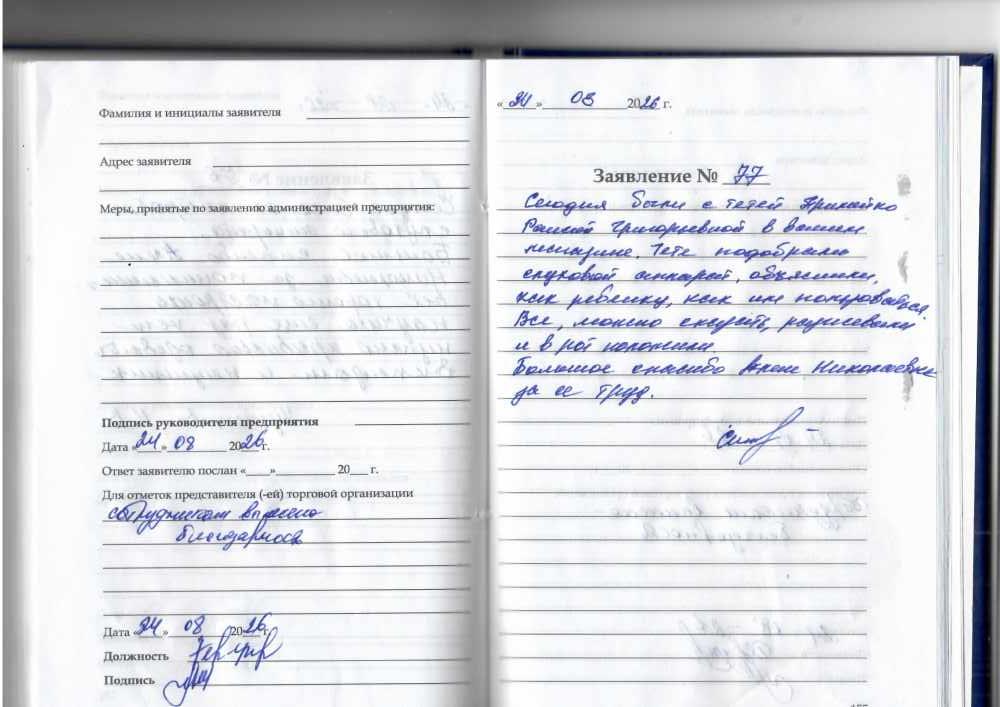 Фамилия и инициалы заявителя
Адрес заявителя
Меры, принятые по заявлению администрацией предприятия:
Подпись руководителя предприятия
Дата «24» 08 2026 г.
Ответ заявителю послан «___»_________ 20___ г.
Для отметок представителя (-ей) торговой организации
сотрудникам вынесена
благодарность
Дата «24» 08 2026 г.
Должность
Подпись
«24» 08 2026 г.
Заявление № 77
Сегодня были с тетей
Раисой Григорьевной в вашем
магазине. Тете подобрали
слуховой аппарат, объяснили,
как ребенку, как им пользоваться.
Все, можно сказать, разжевали
и в рот положили
Большое спасибо Николаевне
за ее труд.